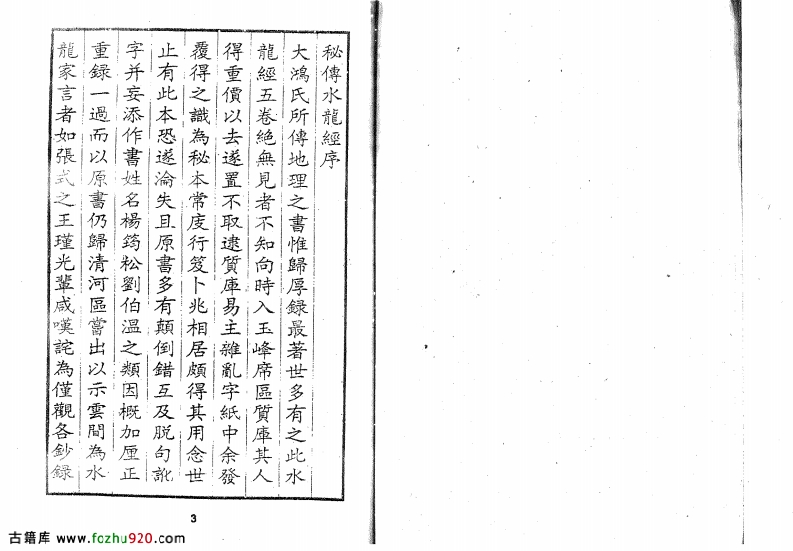 秘傳水龍經序
大鴻氏所傳地理之書惟歸厚錄最著世多有之此水
龍經五卷絕無見者不知向時入玉峰席區質庫其人
得重價以去遂置不取逮質庫易主雜亂字紙中余發
覆得之識為秘本常度行笈卜兆相居頗得其用念世
止有此本恐遂淪失且原書多有顛倒錯互及脫句訛
字并妄添作書姓名楊筠松劉伯溫之類因概加厘正
重錄一過而以原書仍歸清河區當出以示雲間為水
龍家言者如張式之王瑾光輩咸嘆詫為僅觀各鈔錄
3
古籍库 www.fozhu920.com